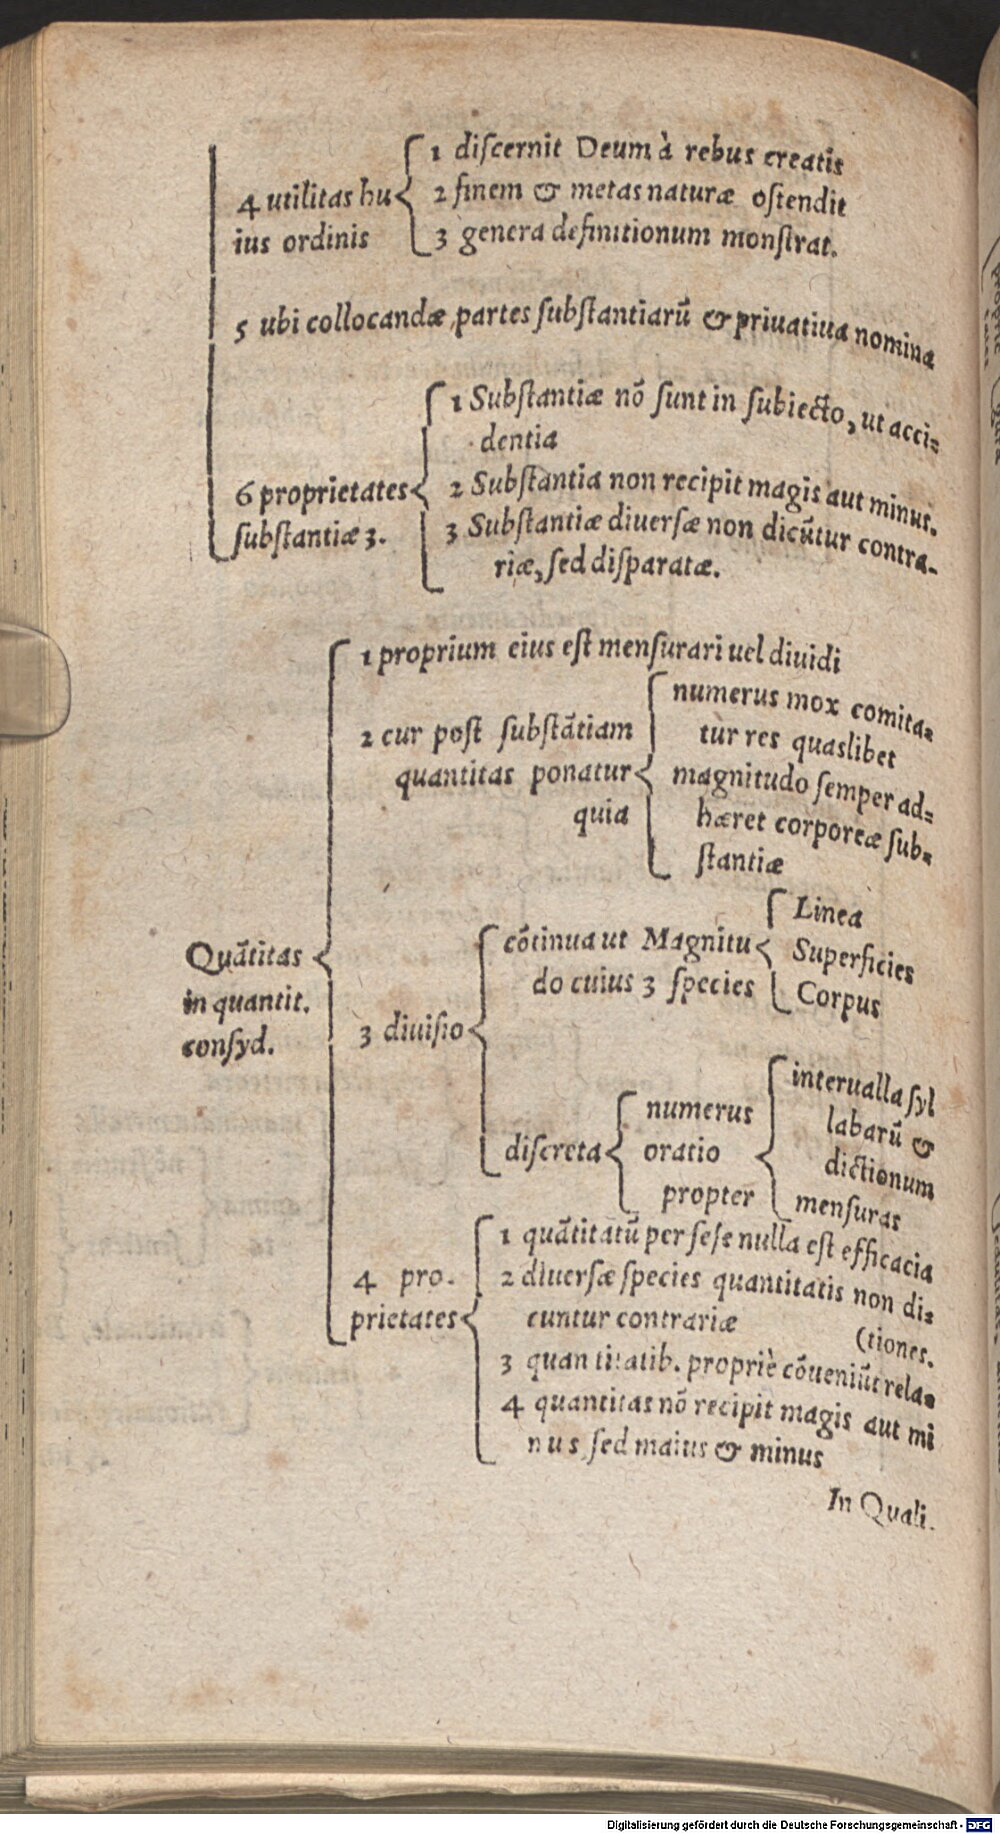 4 utilitas hu
ius ordinis
1 diſcernit Deum à rebus creatis
2 finem & metas naturæ oſtendit
3 genera definitionum monſtrat.
5 ubi collocandæ partes ſubſtantiarũ & priuatiua nomina
6 proprietates
ſubſtantiæ 3.
1 Subſtantiæ nõ ſunt in ſubiecto, ut acci⸗
dentia
2 Subſtantia non recipit magis aut minus.
3 Subſtantiæ diuerſæ non dicũtur contra-
riæ, ſed diſparatæ.
Quãtitas
in quantit.
conſyd.
1 proprium eius eſt menſurari uel diuidi
2 cur poſt ſubſtãtiam
quantitas ponatur
quia
numerus mox comita⸗
tur res quaslibet
magnitudo ſemper ad⸗
hæret corporeæ ſub⸗
ſtantiæ
3 diuiſio
cõtinua ut Magnitu
do cuius 3 ſpecies
Linea
Superficies
Corpus
diſcreta
numerus
oratio
propter
interualla ſyl
labarũ &
dictionum
menſuras
4 pro.
prietates
1 quãtitatũ per ſeſe nulla eſt efficacia
2 diuerſæ ſpecies quantitatis non di⸗
cuntur contrariæ
(tiones.
3 quantitatib. propriè cõueniũt rela⸗
4 quantitas nõ recipit magis aut mi
nus, ſed maius & minus
In Quali.
Digitalisierung gefördert durch die Deutsche Forschungsgemeinschaft - DFG